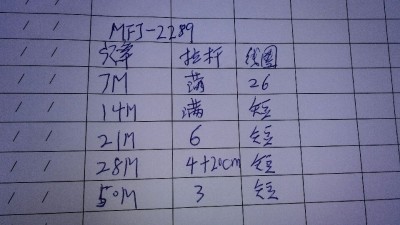 MFJ-2289
频率 拉杆 线圈
7M 满 26
14M 满 短
21M 6 短
28M 4+20cm 短
50M 3 短